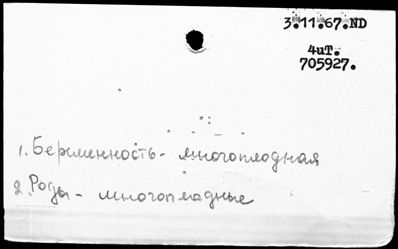 3.11.67.ND
4uT.
705927.
1. Беременность - многоплодная
2. Роды - многоплодные